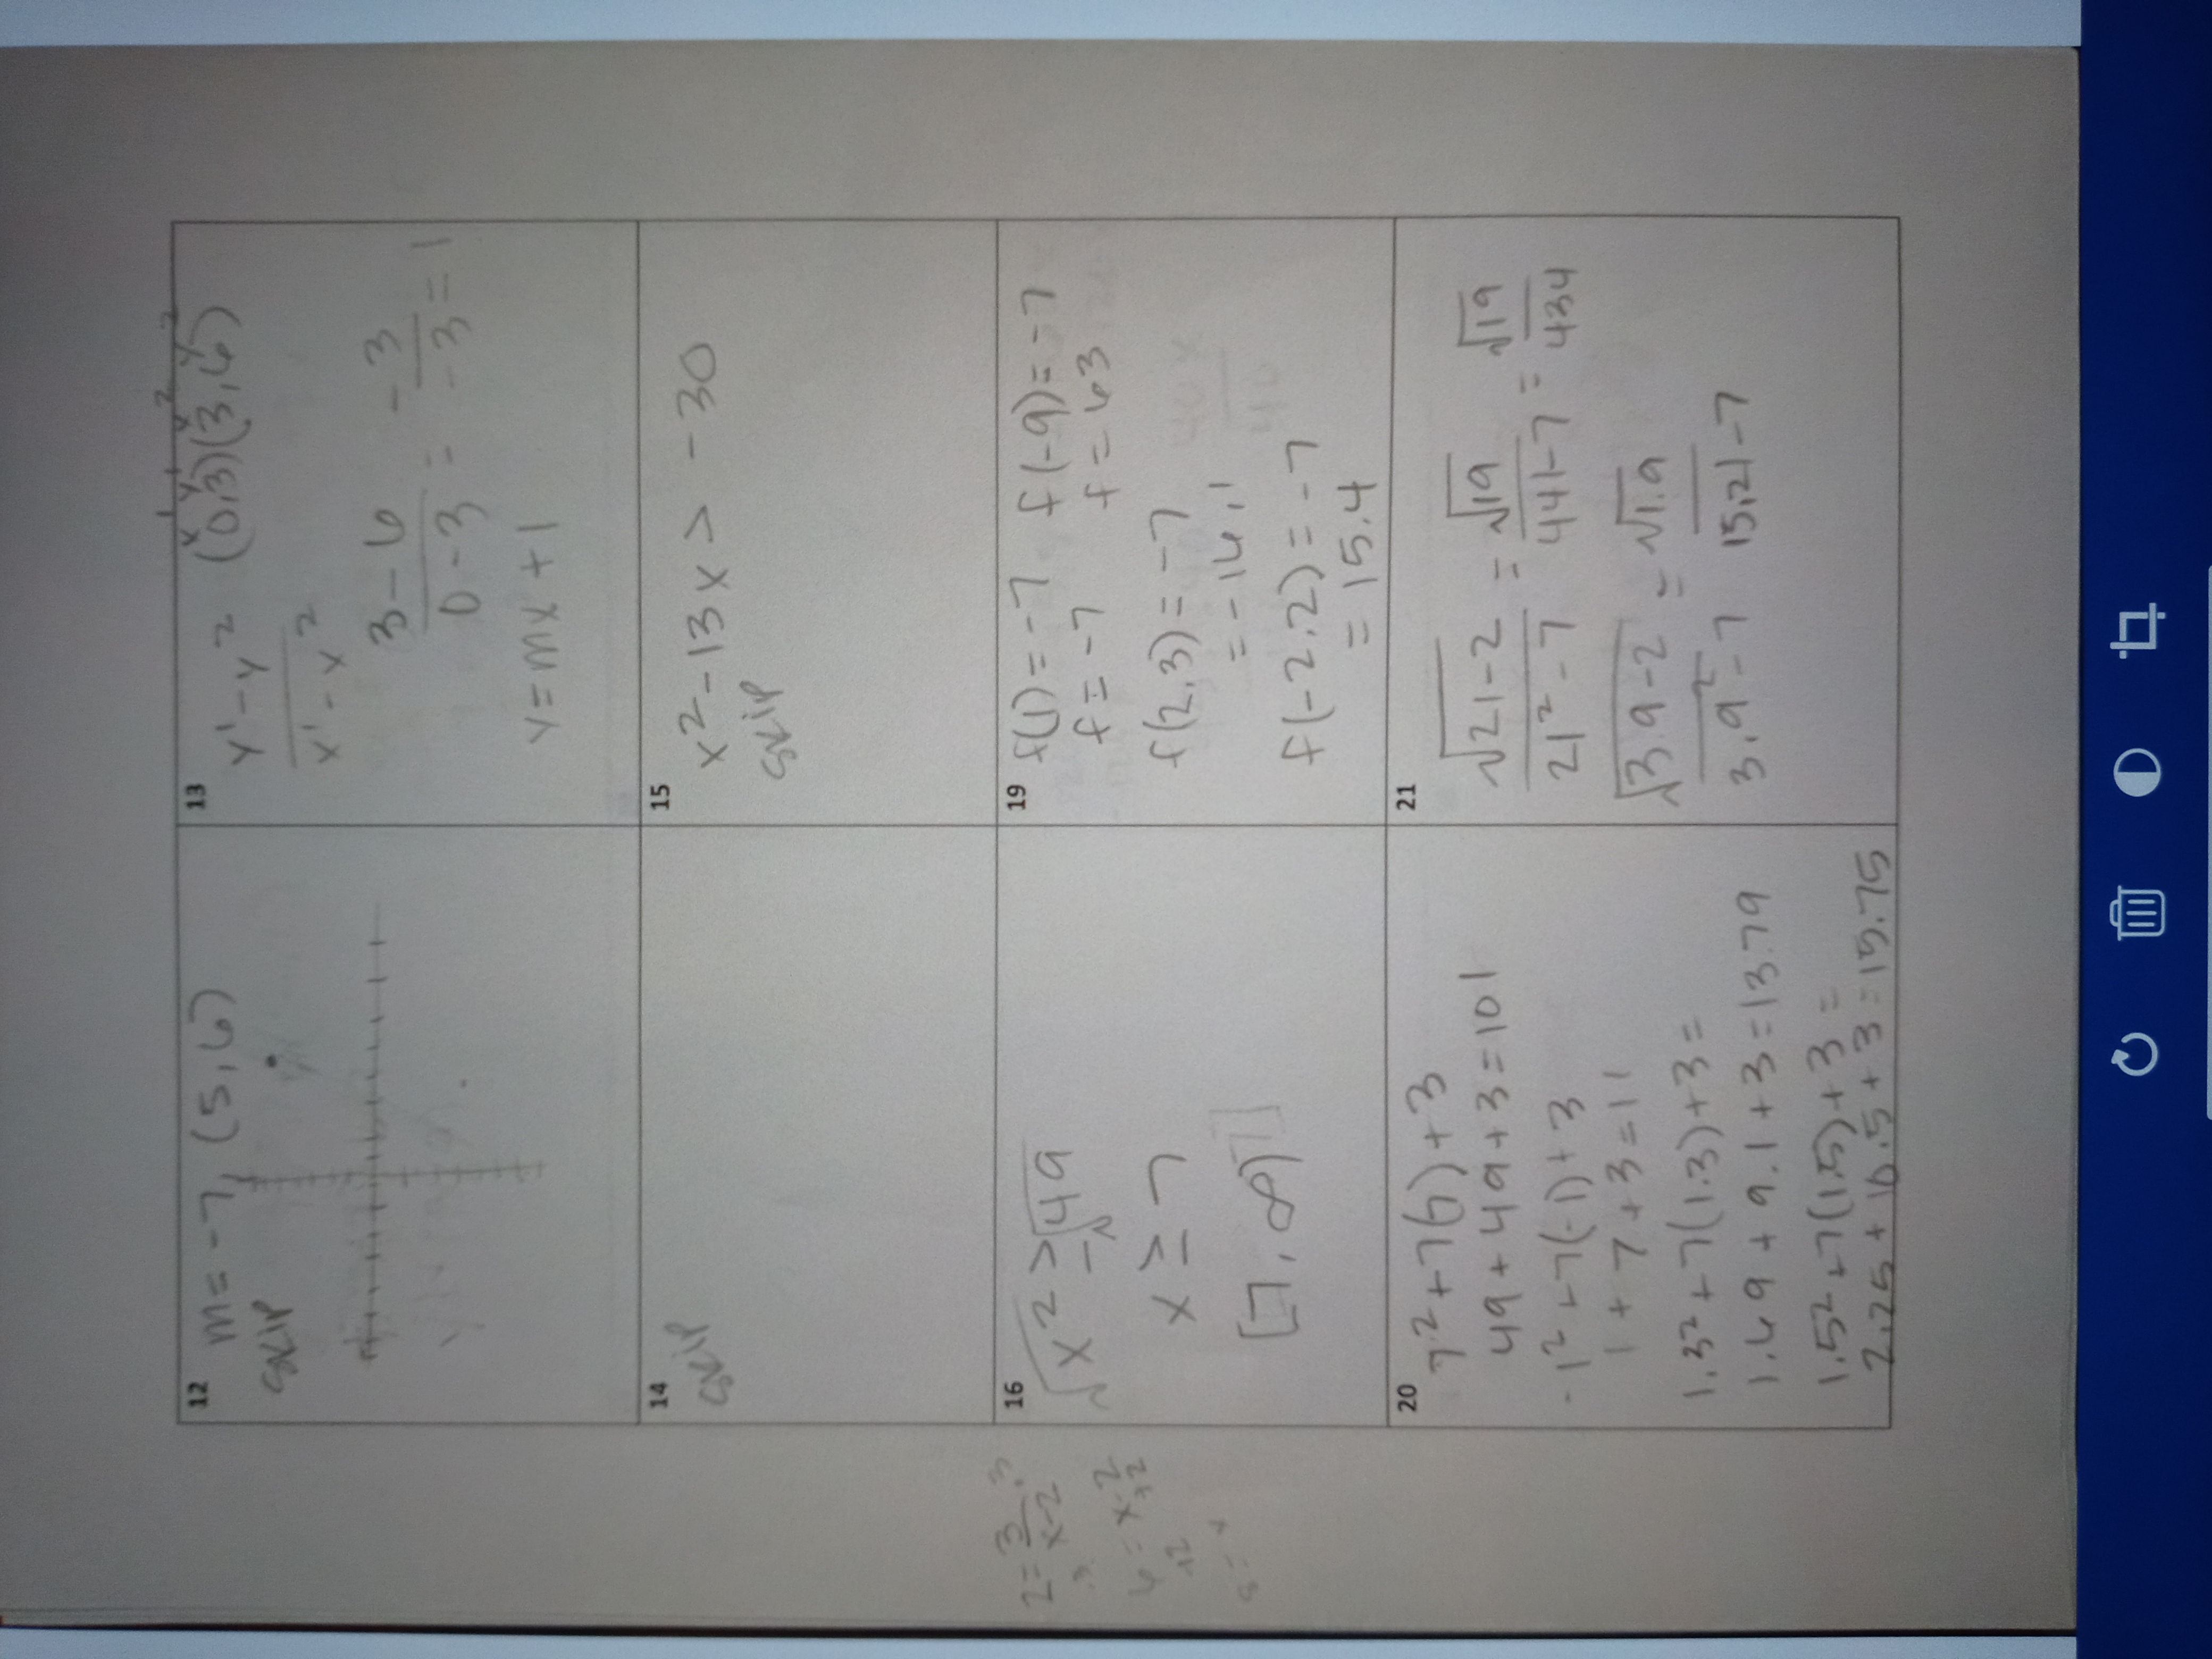 12
m = -7, (5,6)
skip
13
x¹ y¹ x² y²
(0,3)(3,6)
y¹ - y²
x¹ - x²
3 - 6
0 - 3
= -3
-3
= 1
y = mx + 1
14
skip
15
x² - 13x > -30
skip
2 = 3
x-2
.3
.3
6 = x-2
+2
+2
8 = x
16
√x² ≥ √49
x ≥ 7
[7, ∞)
19
f(1) = -7 f(-9) = -7
f = -7 f = 63
f(2,3) = -7
= -16,1
f(-2.2) = -7
= 15.4
20
7² + 7(7) + 3
49 + 49 + 3 = 101
-1² + 7(-1) + 3
1 + 7 + 3 = 11
1.3² + 7(1.3) + 3 =
1.69 + 9.1 + 3 = 13.79
1.5² + 7(1.5) + 3 =
2.25 + 10.5 + 3 = 15.75
21
√21-2 = √19 = √19
21² - 7 441-7 434
√3.9-2 = √1.9
3.9² - 7 15,21-7